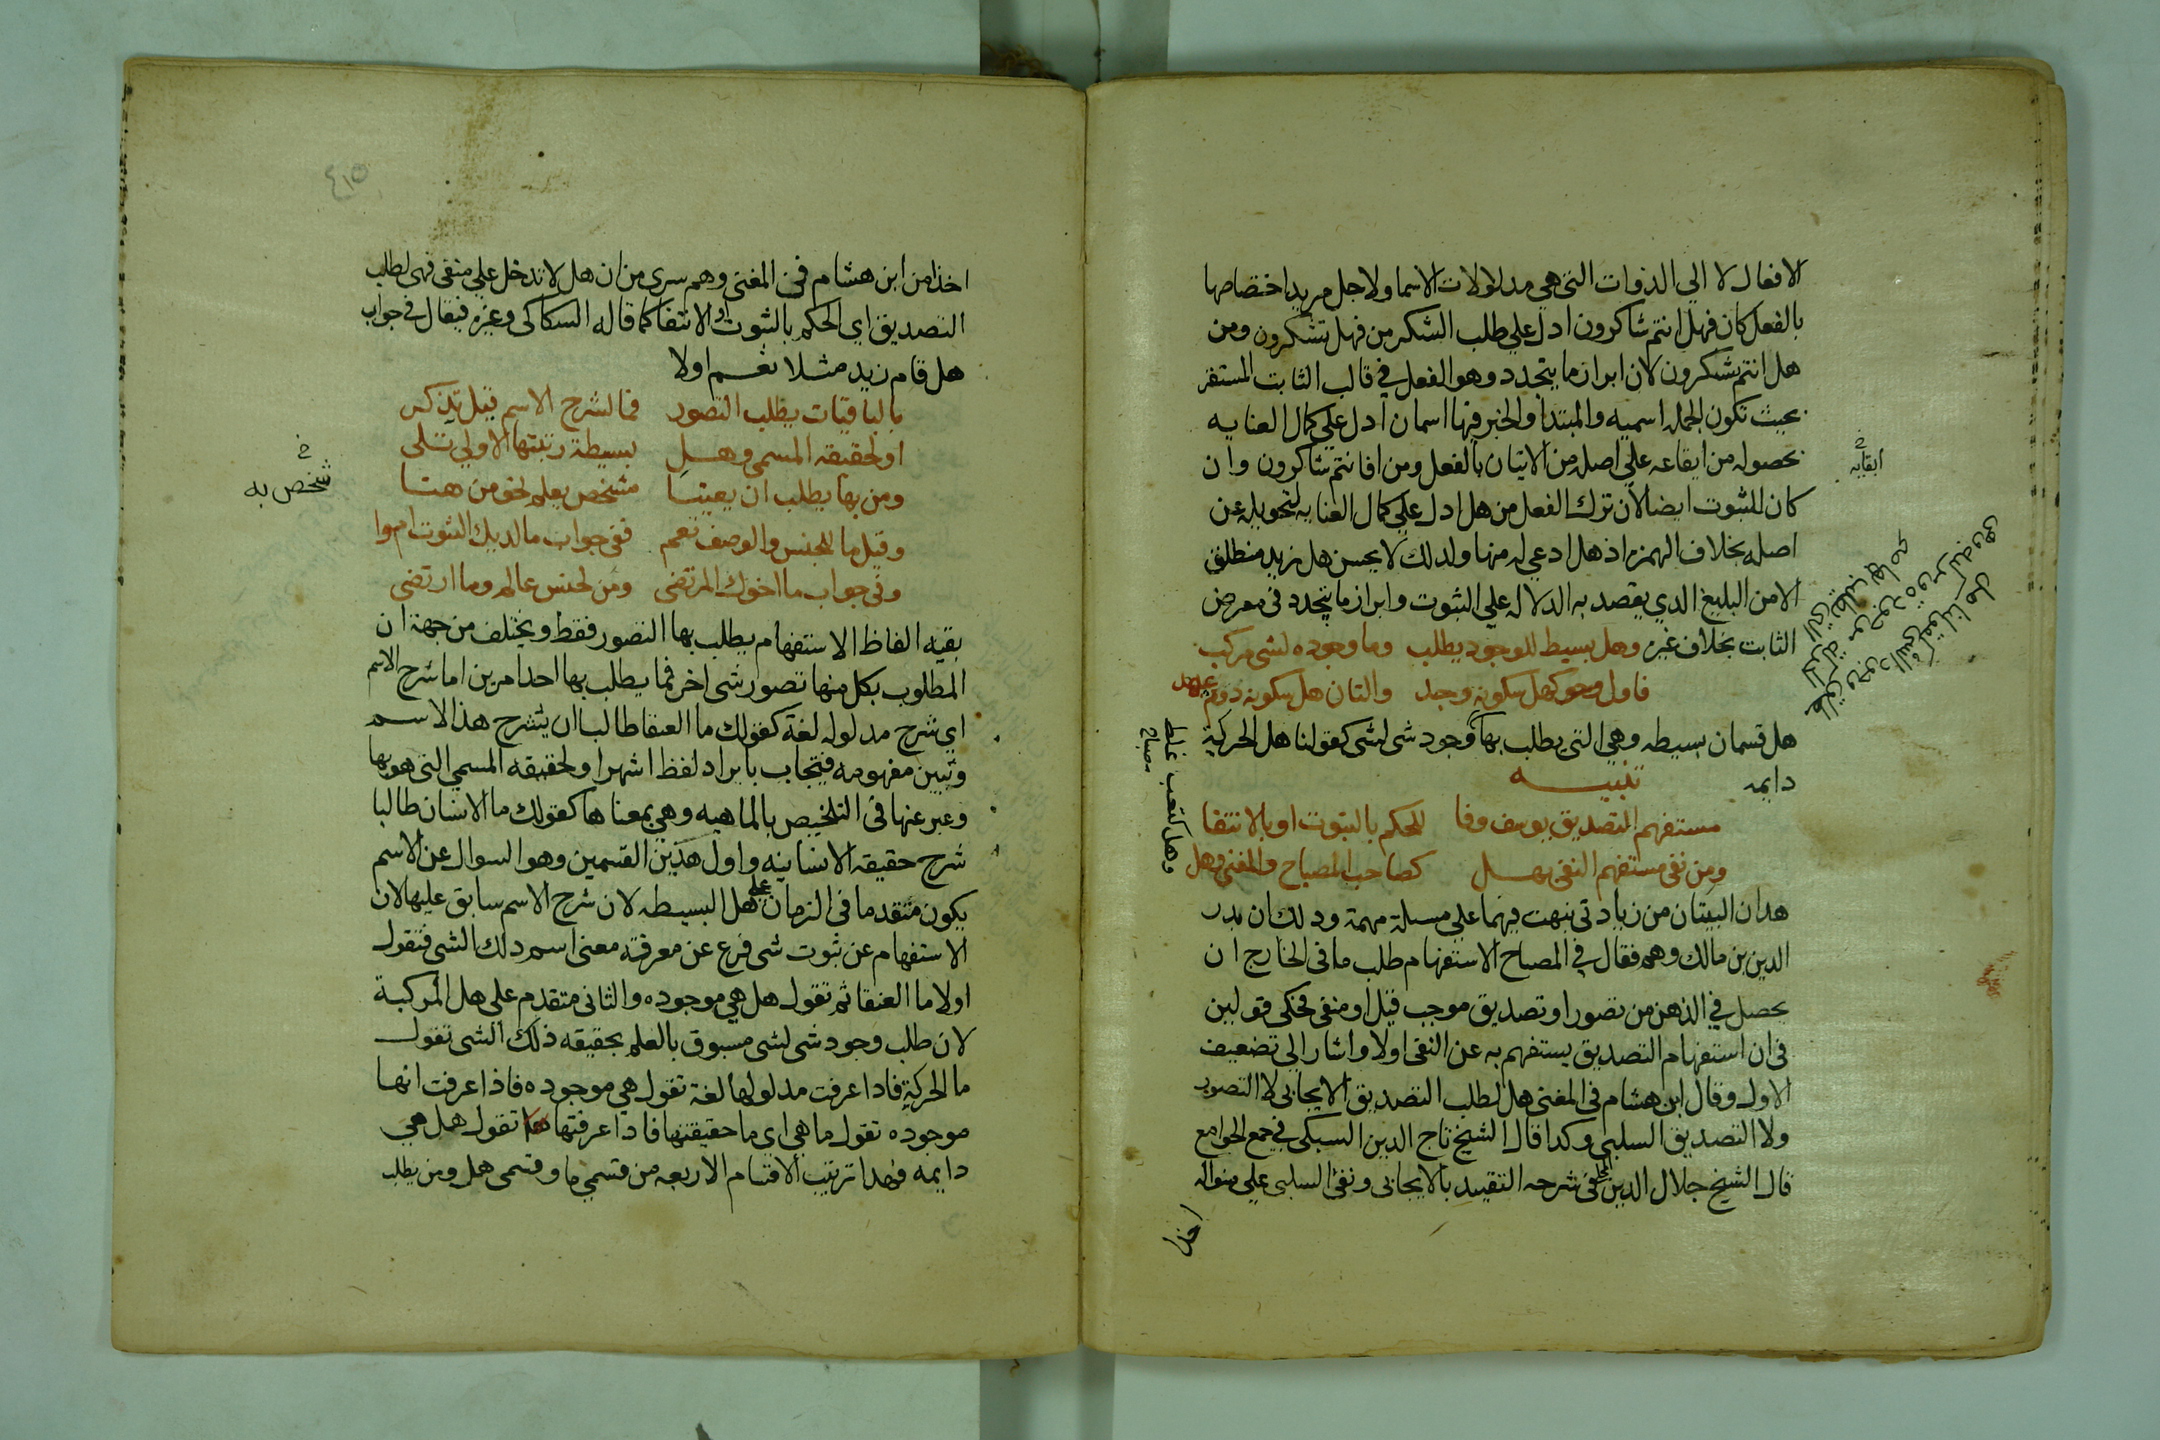 الافعال لا الي الذوات التي هي مدلولات الاسما ولاجل مزيد اختصاصها
بالفعل كان فهل انتم شاكرون ادل علي طلب الشكر من فهل تشكرون ومن
هل انتم تشكرون لان ابراز ما يتجدد وهو الفعل في قالب الثابت المستقر
بحيث تكون الجمله اسميه والمبتدا والخبر فيها اسمان ادل علي كمال العنايه
بحصوله من ايقاعه علي اصله من الاتيان بالفعل ومن افانتم شاكرون وان
كان للثبوت ايضا لان ترك الفعل من هل ادل علي كمال العنايه لتحويله عن
اصله بخلاف الهمزه اذ هل ادعي له منها ولدلك لا يحسن هل زيد منطلق
الا من البليغ الدي يقصد به الدلاله علي الثبوت وابراز ما يتجدد في معرض
الثابت بخلاف غيره وهل بسيط للوجود يطلب وما وجوده لشي مركب
فاول وهو كهل سكونه وجد والثان هل سكونه دوم
هل قسمان بسيطه وهي التي يطلب بها وجود شي لشي كقولنا هل الحركة
دايمه تنبيه
مستفهم التصديق يوسف وفا للحكم بالثبوت او بالانتفا
ومن نفي مستفهم النفي بهل كصاحب المصباح والمغني وهل
هدان البيتان من زيادتي نبهت فيهما علي مسيلة مهمة ودلك ان بدر
الدين بن مالك وهم فقال في المصباح الاستفهام طلب ما في الخارج ان
يحصل في الذهن من تصور او تصديق موجب قيل او منفي فحكي قولين
في ان استفهام التصديق يستفهم به عن النفي اولا واشار الي تضعيف
الاول وقال ابن هشام في المغني هل لطلب التصديق الايجابي لا التصور
ولا التصديق السلبي وكدا قال الشيخ تاج الدين السبكي في جمع الجوامع
قال الشيخ جلال الدين المحلي في شرحه التقييد بالايجابي ونفي السلبي علي منواله
اخذا
اخذا من ابن هشام في المغني وهم سري من ان هل لا تدخل علي منفي فهي لطلب
التصديق اي الحكم بالثبوت او الانتفا كما قاله السكاكي وغيره فيقال في جواب
هل قام زيد مثلا نعم اولا
بالباقيات يطلب التصور فما لشرح الاسم قيل تذكر
او لحقيقه المسمي وهل بسيطة رتبتها الاولي تتلى
ومن بها يطلب ان يعينا مشخص يعلم نحو من هنا
وقيل ما للجنس والوصف نعم ففي جواب ما لديك الثوب ام وا
وفي جواب ما اخوك المرتضي ومن لجنس عالم وما ارتضي
شخص به
بقيه الفاظ الاستفهام يطلب بها التصور فقط ويختلف من جهة ان
المطلوب بكل منها تصور شي اخر فما يطلب بها احد امرين اما شرح الاسم
اي شرح مدلوله لغة كقولك ما العنقا طالبا ان يشرح هذا الاسم
وتبين مفهومه فيتجاب بايراد لفظ اشهر او لحقيقه المسمي التي هو بها
وعبر عنها في التلخيص بالماهيه وهي بمعناها كقولك ما الانسان طالبا
شرح حقيقه الانسانيه واول هذين القسمين وهو السوال عن الاسم
يكون متقدما في الزمان علي هل البسيطه لان شرح الاسم سابق عليها لان
الاستفهام عن ثبوت شي فرع عن معرفته معني اسم دلك الشي فتقول
اولا ما العنقا ثم تقول هل هي موجوده والثاني متقدم علي هل المركبة
لان طلب وجود شي لشي مسبوق بالعلم بحقيقه ذلك الشي تقول
ما الحركة فادا عرفت مدلولها لغة تقول هي موجوده فاذا عرفت انها
موجوده تقول ما هي اي ما حقيقتها فادا عرفتها تقول هل هي
دايمه فهدا ترتيب الاقسام الاربعه من قسمي ما وقسمي هل ومن يطلب